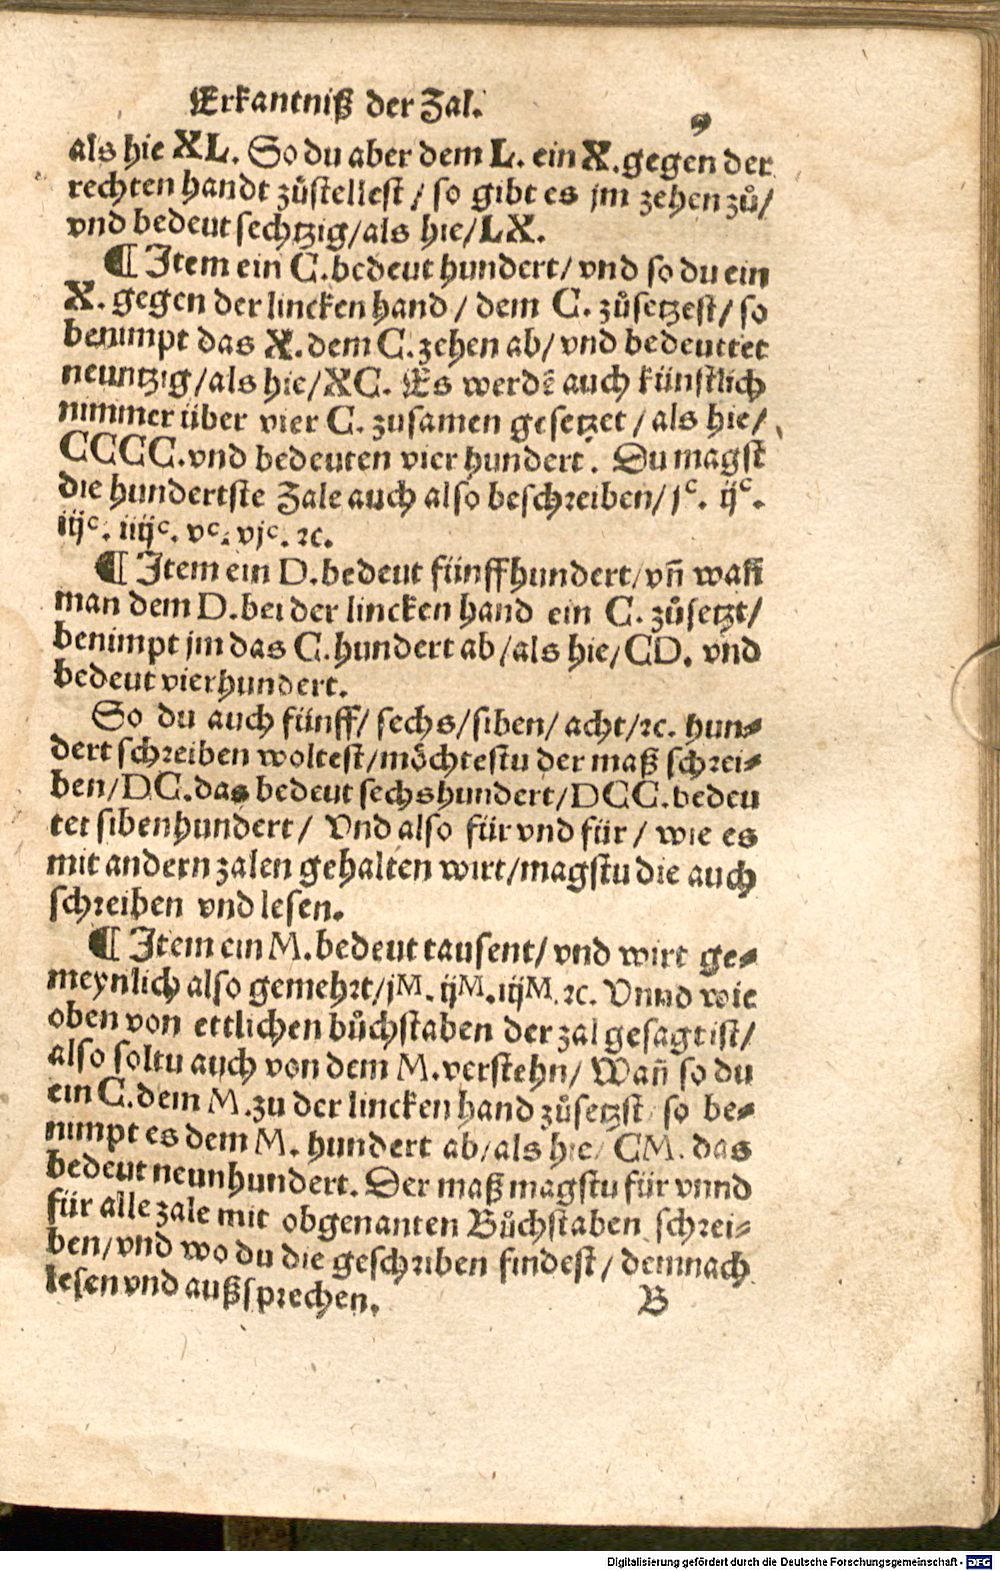 Erkantniß der Zal.
9
als hie XL. So du aber dem L. ein X. gegen der
rechten handt zůstellest / so gibt es jm zehen zů/
vnd bedeut sechtzig/als hie/LX.
¶ Item ein C. bedeut hundert/ vnd so du ein
X. gegen der lincken hand / dem C. zůsetzest/ so
benimpt das X. dem C. zehen ab/ vnd bedeuttet
neuntzig/als hie/XC. Es werdē auch künstlich
nimmer über vier C. zusamen gesetzet / als hie/
CCCC. vnd bedeuten vier hundert. Du magst
die hundertste Zale auch also beschreiben/ jᶜ. ijᶜ.
iijᶜ. iiijᶜ. vᶜ. vjᶜ. ꝛc.
¶ Item ein D. bedeut fünffhundert/ vñ wañ
man dem D. bei der lincken hand ein C. zůsetzt/
benimpt jm das C. hundert ab/als hie/ CD. vnd
bedeut vierhundert.
So du auch fünff/ sechs/siben/ acht/ꝛc. hun⸗
dert schreiben woltest/möchtestu der maß schrei⸗
ben/DC. das bedeut sechshundert/DCC. bedeu
tet sibenhundert/ Vnd also für vnd für / wie es
mit andern zalen gehalten wirt/magstu die auch
schreiben vnd lesen.
¶ Item ein M. bedeut tausent/ vnd wirt ge⸗
meynlich also gemehrt/jᴹ. ijᴹ. iijᴹ. ꝛc. Vnnd wie
oben von ettlichen bůchstaben der zal gesagt ist/
also soltu auch von dem M. verstehn/ Wañ so du
ein C. dem M. zu der lincken hand zůsetzst/ so be⸗
nimpt es dem M. hundert ab/als hie/ CM. das
bedeut neunhundert. Der maß magstu für vnnd
für alle zale mit obgenanten Bůchstaben schrei⸗
ben/vnd wo du die geschriben findest/ demnach
lesen vnd außsprechen.
B
Digitalisierung gefördert durch die Deutsche Forschungsgemeinschaft - DFG